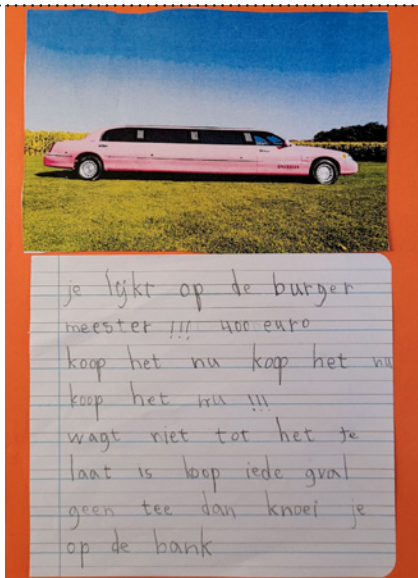 je lijkt op de burger
meester !!! 400 euro
koop het nu koop het nu
koop het nu !!!
wagt niet tot het te
laat is koop iede gval
geen tee dan knoei je
op de bank